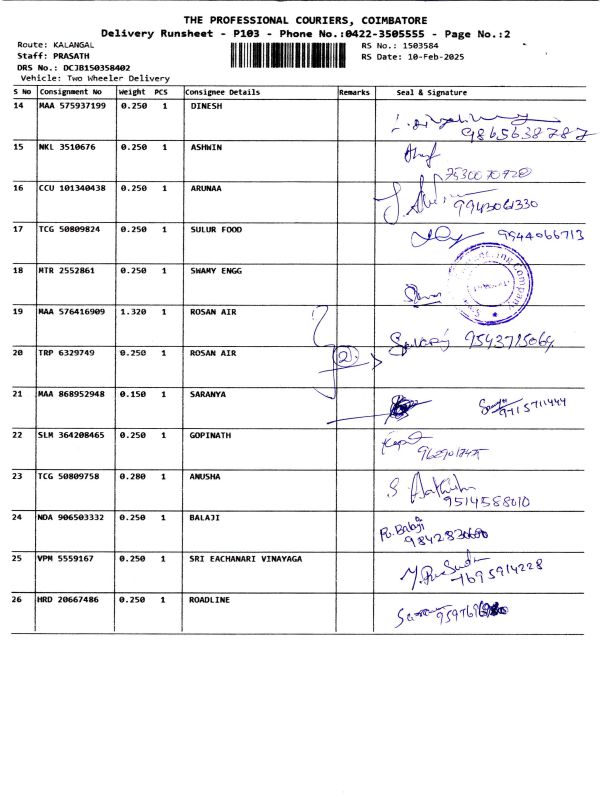 THE PROFESSIONAL COURIERS, COIMBATORE
Delivery Runsheet - P103 - Phone No.:0422-3505555 - Page No.:2
Route: KALANGAL
RS No.: 1503584
Staff: PRASATH
RS Date: 10-Feb-2025
DRS No.: DCJB150358402
Vehicle: Two Wheeler Delivery
S No Consignment No Weight PCS Consignee Details Remarks Seal & Signature
14 MAA 575937199 0.250 1 DINESH
9865638787
15 NKL 3510676 0.250 1 ASHWIN
7530070720
16 CCU 101340438 0.250 1 ARUNAA
9943061330
17 TCG 50809824 0.250 1 SULUR FOOD 9944066713
18 MTR 2552861 0.250 1 SWAMY ENGG
19 MAA 576416909 1.320 1 ROSAN AIR
9543715064
20 TRP 6329749 0.250 1 ROSAN AIR 2
21 MAA 868952948 0.150 1 SARANYA
9715711444
22 SLM 364208465 0.250 1 GOPINATH
23 TCG 50809758 0.280 1 ANUSHA
9514588010
24 NDA 906503332 0.250 1 BALAJI
Balaji
25 VPM 5559167 0.250 1 SRI EACHANARI VINAYAGA
7695914228
26 HRD 20667486 0.250 1 ROADLINE